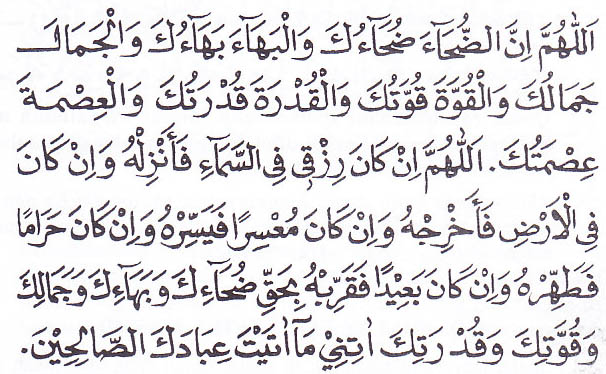 اَللّٰهُمَّ اِنَّ الضُّحَآءَ ضُحَآءُكَ وَالْبَهَآءَ بَهَآءُكَ وَالْجَمَالَ
جَمَالُكَ وَالْقُوَّةَ قُوَّتُكَ وَالْقُدْرَةَ قُدْرَتُكَ وَالْعِصْمَةَ
عِصْمَتُكَ. اَللّٰهُمَّ اِنْ كَانَ رِزْقِى فِى السَّمَآءِ فَأَنْزِلْهُ وَاِنْ كَانَ
فِى الْاَرْضِ فَأَخْرِجْهُ وَاِنْ كَانَ مُعْسِرًا فَيَسِّرْهُ وَاِنْ كَانَ حَرَامًا
فَطَهِّرْهُ وَاِنْ كَانَ بَعِيْدًا فَقَرِّبْهُ بِحَقِّ ضُحَاءِكَ وَبَهَاءِكَ وَجَمَالِكَ
وَقُوَّتِكَ وَقُدْرَتِكَ اٰتِنِيْ مَآاٰتَيْتَ عِبَادَكَ الصَّالِحِيْنَ.